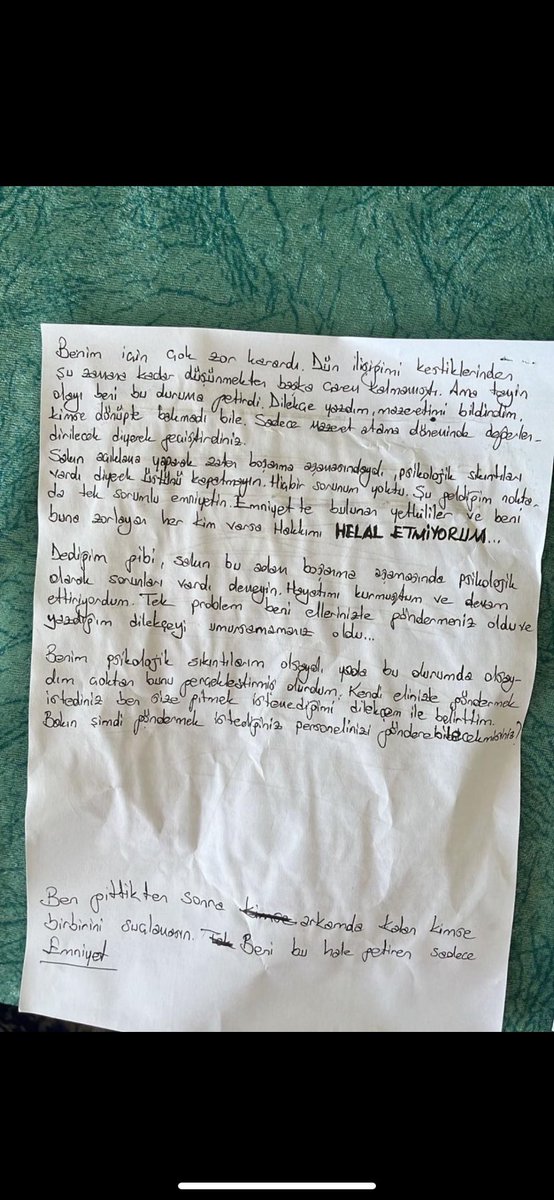 Benim için çok zor karardı. Dün iliğiğimi kestiklerinden
şu zamana kadar düşünmekten başka çarem kalmamıştı. Ama tayin
olayı beni bu duruma getirdi. Dilekçe yazdım, mazeretimi bildirdim,
kimse dönüpte bakmadı bile. Sadece mazeret atama döneminde değerlen-
dirilecek diyerek geçiştirdiniz.
Sakın açıklama yaparak zaten boşanma aşamasındaydı, psikolojik sıkıntıları
vardı diyerek üstünü kapatmayın. Hiçbir sorunum yoktu. Şu geldiğim nokta-
da tek sorumlu emniyetin. Emniyet'te bulunan yetkililer ve beni
buna zorlayan her kim varsa Hakkımı HELAL ETMİYORUM...
Dediğim gibi, sakın bu adam boşanma aşamasında psikolojik
olarak sorunları vardı demeyin. Hayatımı kurmuştum ve devam
ettiriyordum. Tek problem beni ellerinizle göndermeniz oldu ve
yazdığım dilekçeyi umursamamanız oldu...
Benim psikolojik sıkıntılarım olsaydı yada bu durumda olsay-
dım çoktan bunu gerçekleştirmiş olurdum. Kendi elinizle göndermek
istediniz ben size gitmek istemediğimi dilekçem ile belirttim.
Bakın şimdi göndermek istediğiniz personelinizi gönderebilecekmisiniz?
Ben gittikten sonra kimse arkamda kalan kimse
birbirini suçlamasın. Tek Beni bu hale getiren sadece
Emniyet